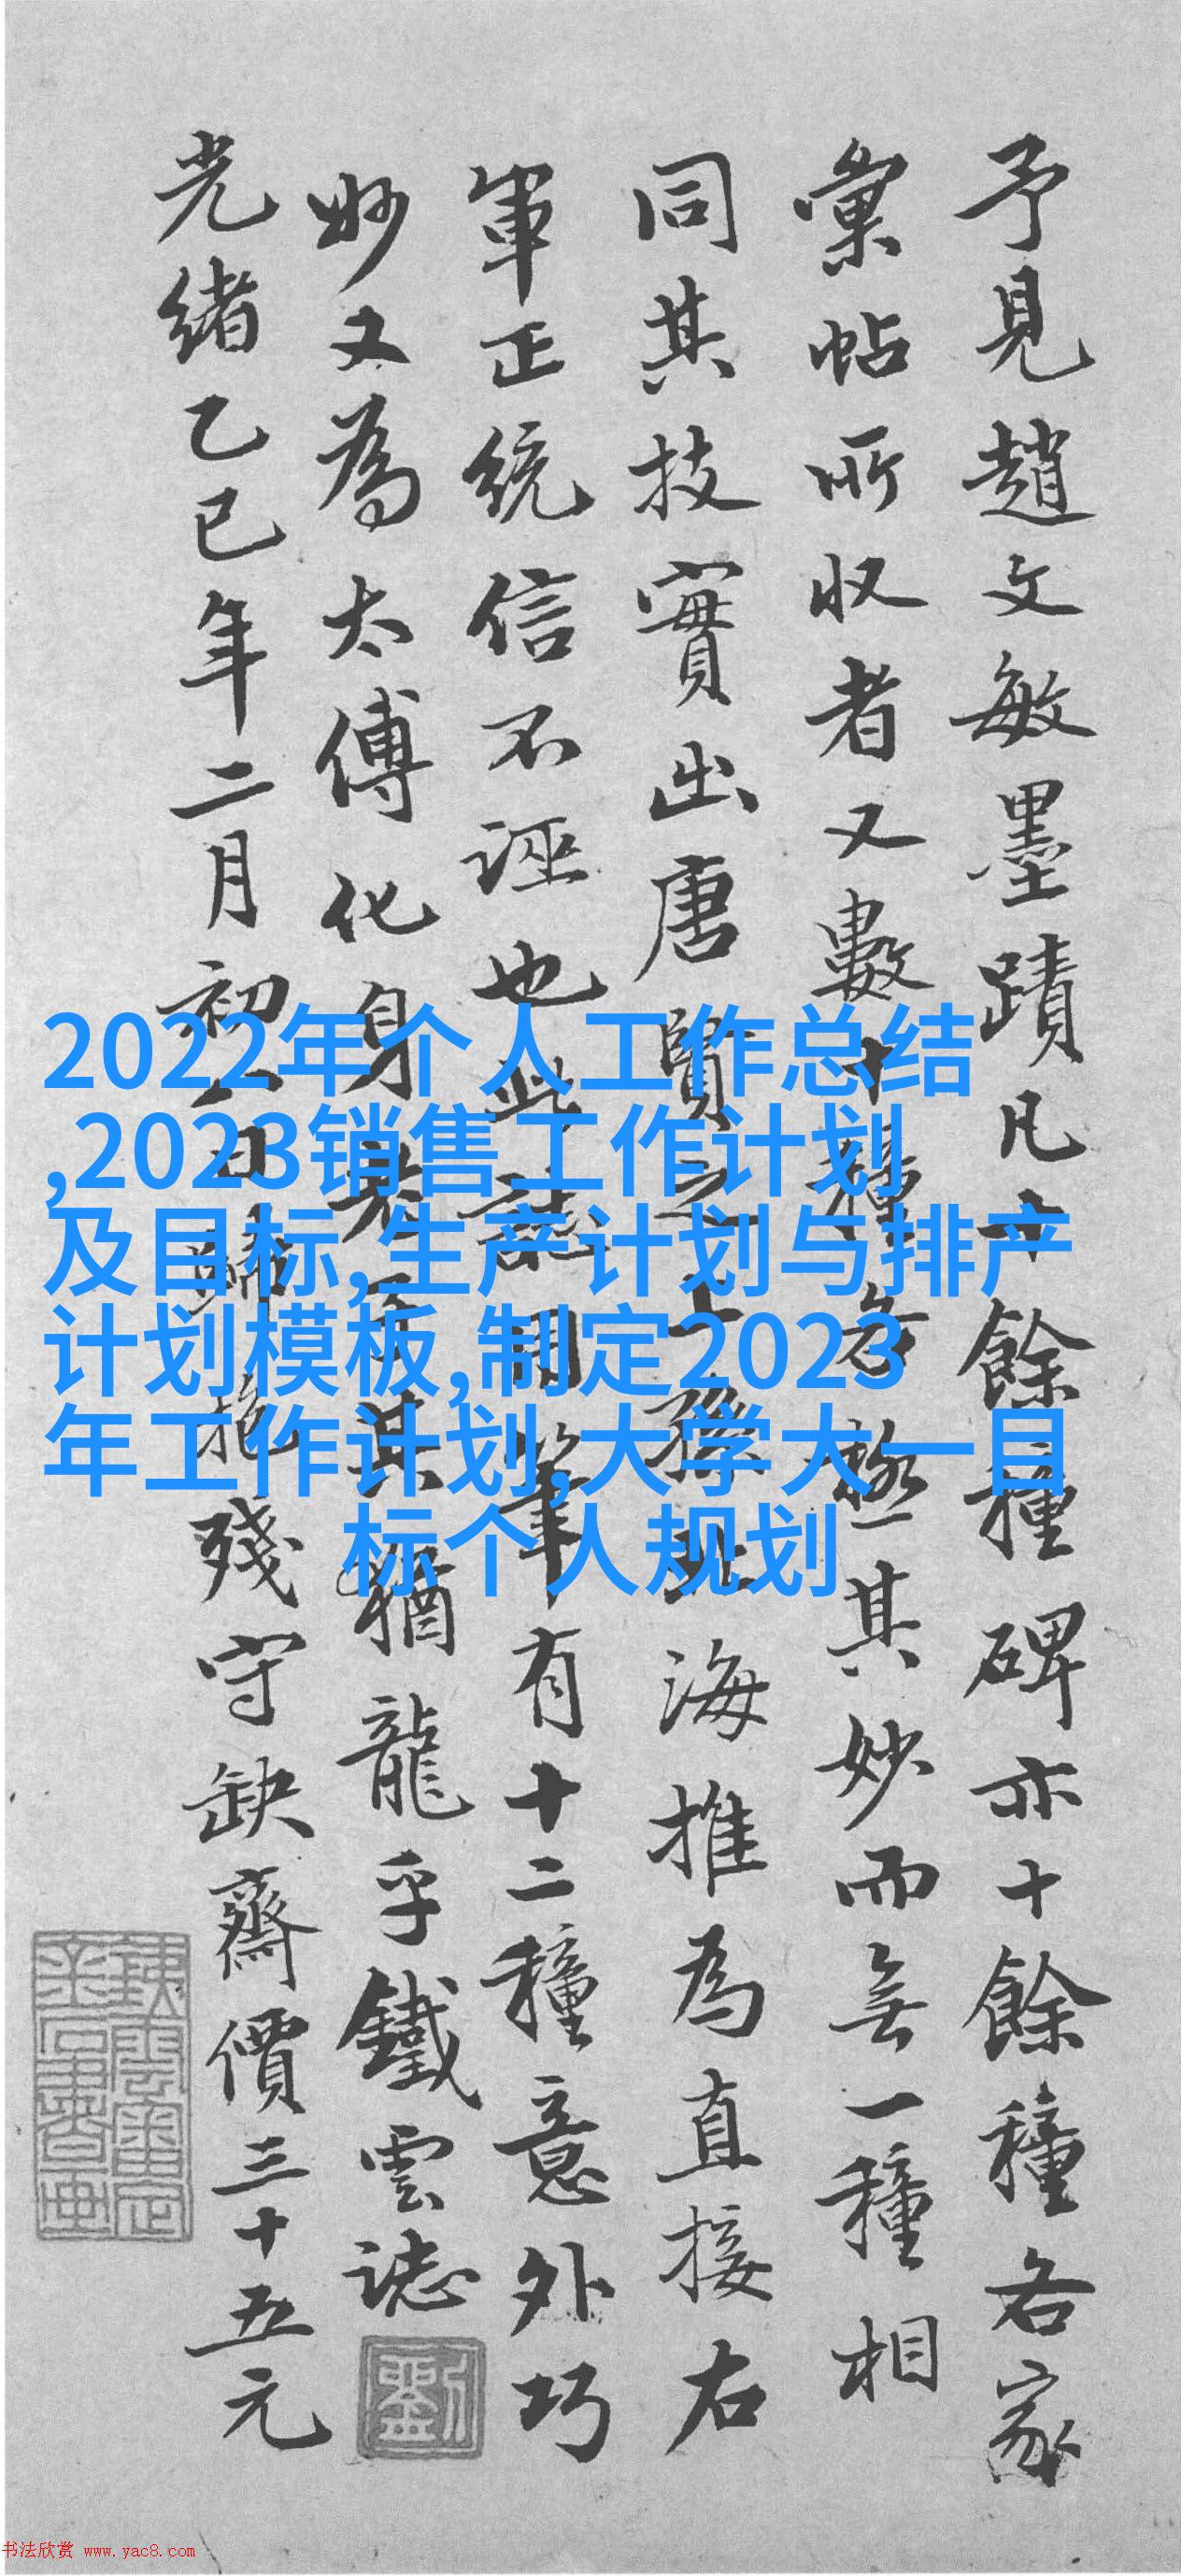 予見趙文敏墨蹟凡十餘種碑亦十餘種各家
彙帖所収者又數十種各極其妙而無一種相
同其技實出唐賢之上孫北海推為直接右
軍正統信不誣也此誌用筆有十二種意外巧
妙又為太傅化身老子其猶龍乎鐵雲誌
劉
光緒乙巳年二月初日歸抱殘守缺齋價三十五元
鐵雲審定
金石書畫
2022年个人工作总结
,2023销售工作计划
及目标,生产计划与排产
计划模板,制定2023
年工作计划,大学大一目
标个人规划
书法欣赏 www.yac8.com